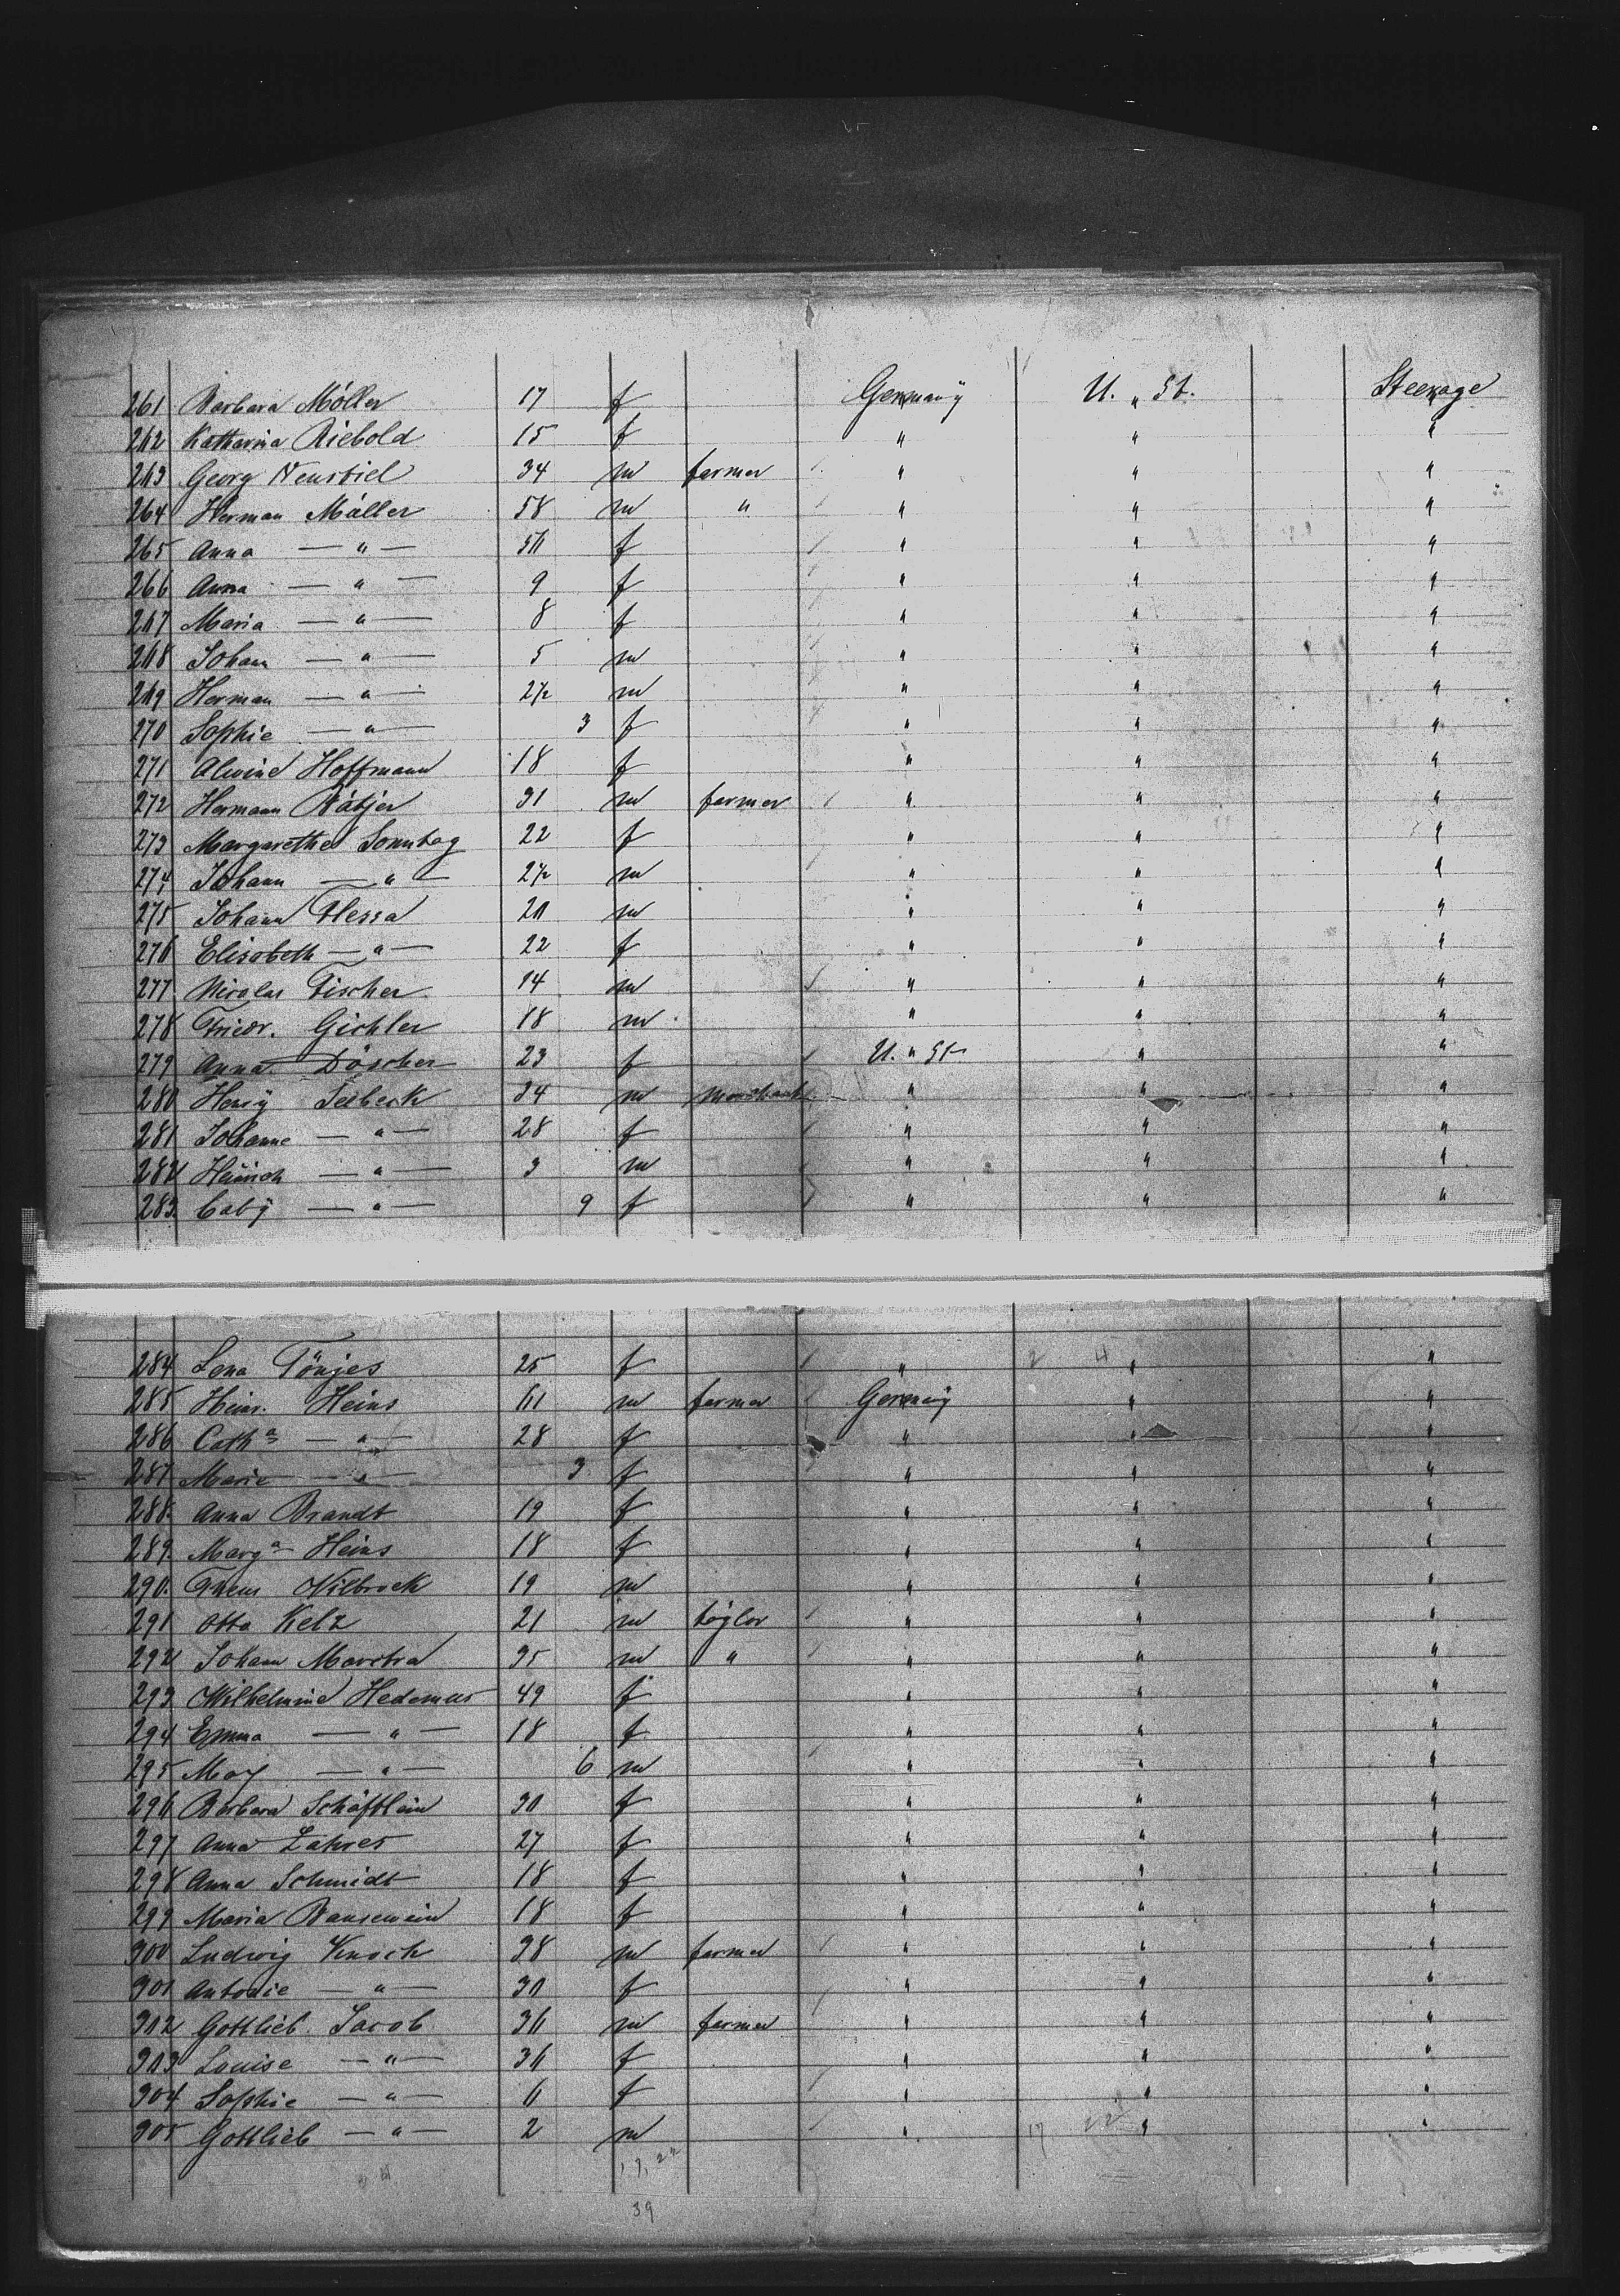 261 Barbara Möller 17 f Germany U. " St. Steerage
262 Katharina Riebold 15 f " " "
263 Georg Neustiel 34 m farmer " " "
264 Herman Möller 58 m " " " "
265 Anna — " — 36 f " " "
266 Anna — " — 9 f " " "
267 Maria — " — 8 f " " "
268 Johann — " — 5 m " " "
269 Herman — " — 2½ m " " "
270 Sophie — " — 3 f " " "
271 Alwine Hoffmann 18 f " " "
272 Hermann Rätjer 31 m farmer " " "
273 Margarethe Sonntag 22 f " " "
274 Johann — " — 2½ m " " "
275 Johann Flessa 20 m " " "
276 Elisabeth — " — 22 f " " "
277 Nicolas Fischer 14 m " " "
278 Friedr. Gichler 18 m " " "
279 Anna Döscher 23 f U. " St " "
280 Henry Seebeck 34 m merchant " " "
281 Johanne — " — 28 f " " "
282 Heinrich — " — 3 m " " "
283 Caby — " — 9 f " " "
284 Lena Tönjes 25 f " 2 4 " "
285 Heinr. Heins 61 m farmer Germany " "
286 Cath a — " — 28 f " " "
287 Marie — " — 3 f " " "
288. Anna Brandt 19 f " " "
289. Marg a Heins 18 f " " "
290. Wilbrock 19 m " " "
291 Otto Kelz 21 m taylor " " "
292 Johann 35 m " " " "
293 Wilhelmine Hedemus 49 f " " "
294 Emma — " — 18 f " " "
295 Max — " — 6 m " " "
296 Barbara Schäftlein 30 f " " "
297 Anna Lahres 27 f " " "
298 Anna Schmidt 18 f " " "
299 Maria Bausewein 18 f " " "
300 Ludwig Knoch 38 m farmer " " "
301 Antonie — " — 30 f " " "
302 Gottlieb. Jacob 36 m farmer " " "
303 Louise — " — 36 f " " "
304 Sophie — " — 6 f " " "
305 Gottlieb — " — 2 m " 17 22 " "
17, 22
39